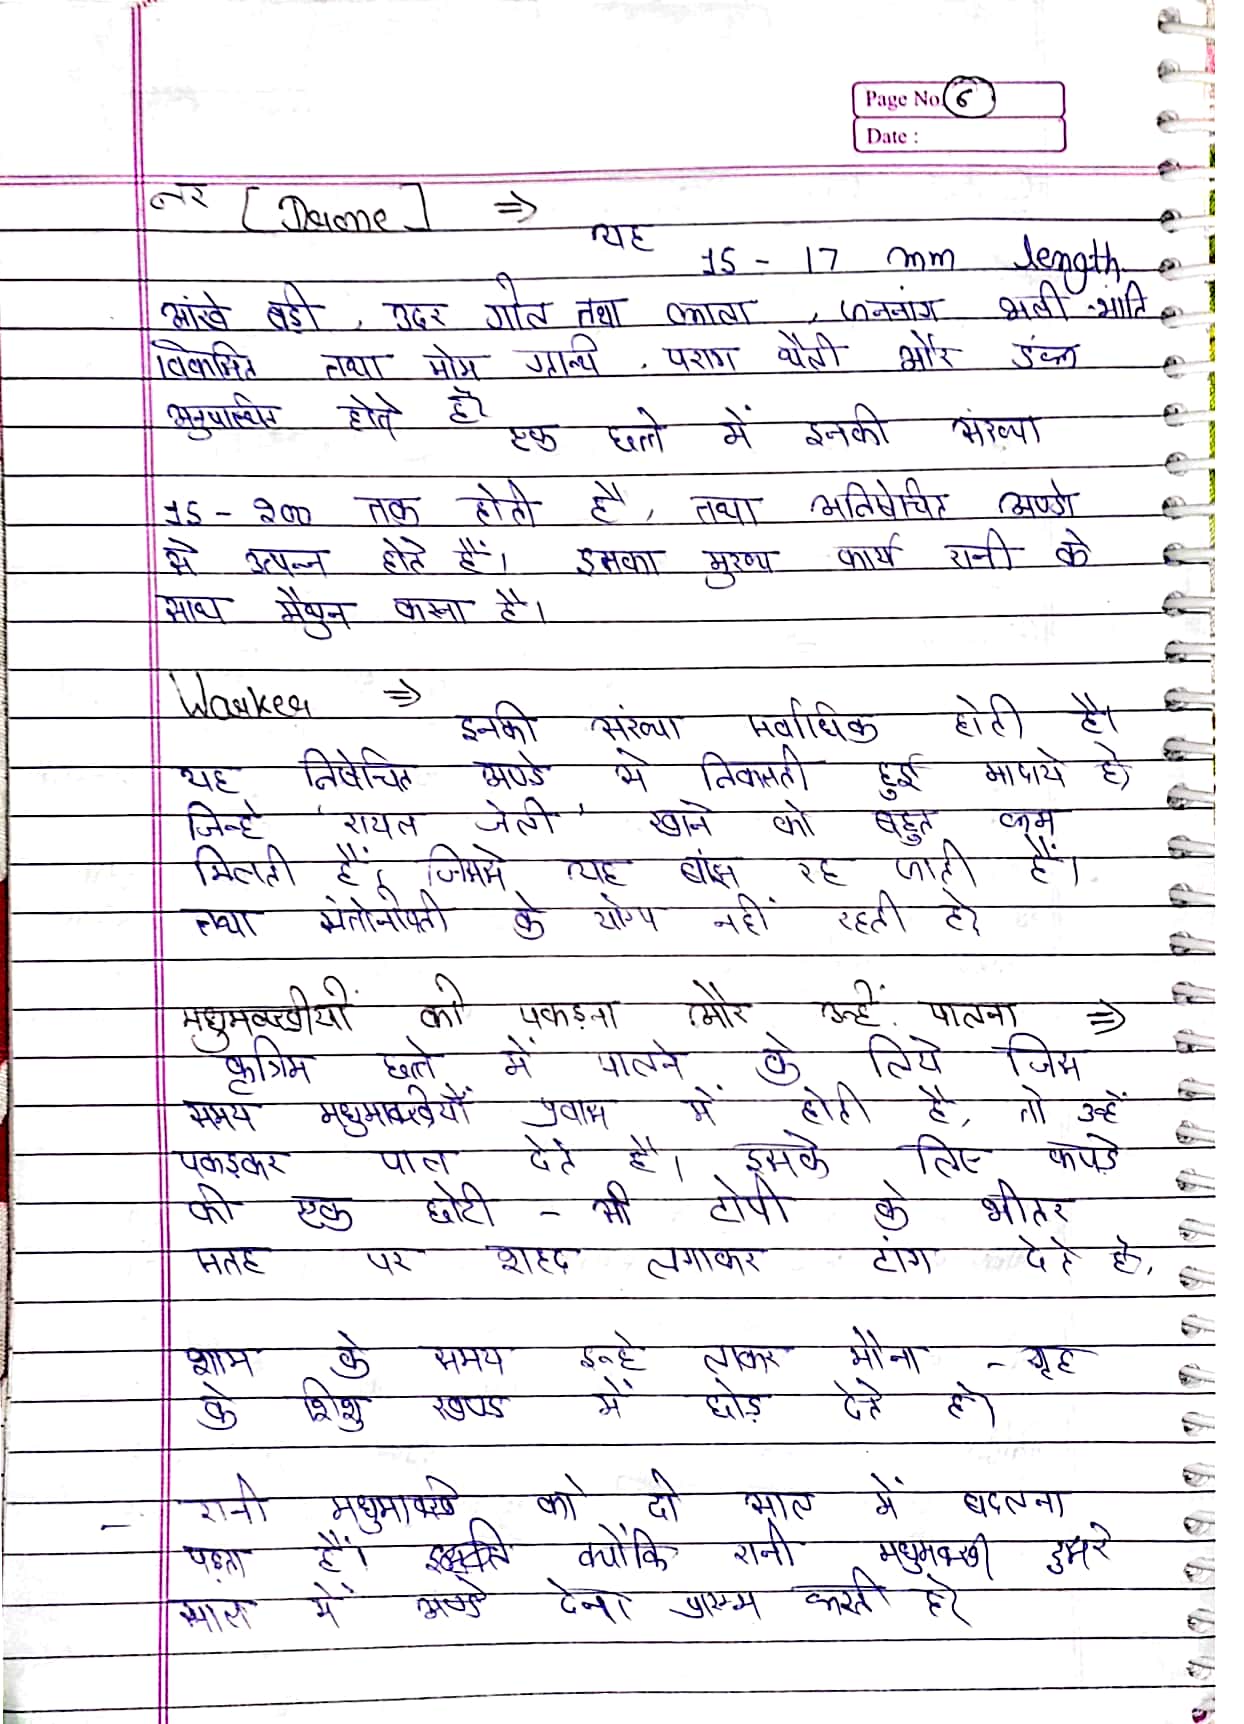 Page No. 6
Date :
नर [Drone] ⇒
यह 15 - 17 mm length
आंखे बड़ी, उदर गोल तथा काला, जननांग भली-भांति
विकसित तथा मोम ग्रन्थि, पराग थैली और डंक
अनुपस्थित होते है।
एक छत्ते में इनकी संख्या
15 - 200 तक होती है, तथा अनिषेचित अण्डो
से उत्पन्न होते हैं। इसका मुख्य कार्य रानी के
साथ मैथुन करना है।
Worker ⇒
इनकी संख्या सर्वाधिक होती है।
यह निषेचित अण्डे से निकलती हुई मादाये है,
जिन्हे 'रायल जेली' खाने को बहुत कम
मिलती हैं, जिससे यह बांझ रह जाती हैं।
तथा के योग्य नहीं रहती है।
मधुमक्खीयों को पकड़ना और उन्हें पालना ⇒
कृत्रिम छत्ते में पालने के लिये जिस
समय मधुमक्खियाँ प्रवास में होती है, तो उन्हें
पकड़कर पाल देते है। इसके लिए कपड़े
की एक छोटी - सी टोपी के भीतर
सतह पर शहद लगाकर टांग देते है,
शाम के समय इन्हे लाकर मौना - गृह
के शिशु खण्ड में छोड़ देते है।
- रानी मधुमक्खी को दो साल में बदलना
पड़ता हैं। क्योंकि रानी मधुमक्खी दुसरे
साल में अण्डे देना प्रारम्भ करती है।